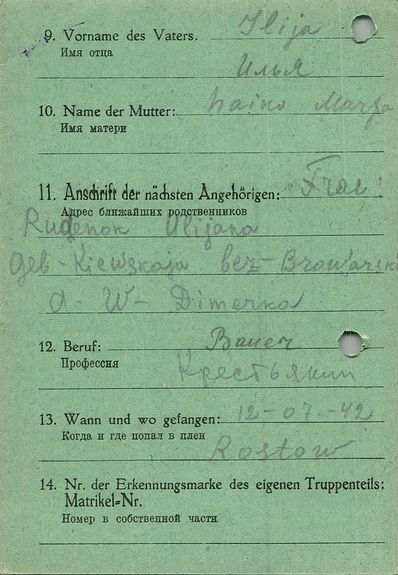 9. Vorname des Vaters. Ilija
Имя отца
Илья
10. Name der Mutter: Marfa
Имя матери
11. Anschrift der nächsten Angehörigen: Frau
Адрес ближайших родственников
Rudenok Ulijana
geb-Kiewskaja bez-Browarski
d-W-Dimerka
12. Beruf: Bauer
Профессия
Крестьянин
13. Wann und wo gefangen: 12-07-42
Когда и где попал в плен
Rostow
14. Nr. der Erkennungsmarke des eigenen Truppenteils:
Matrikel-Nr.
Номер в собственной части